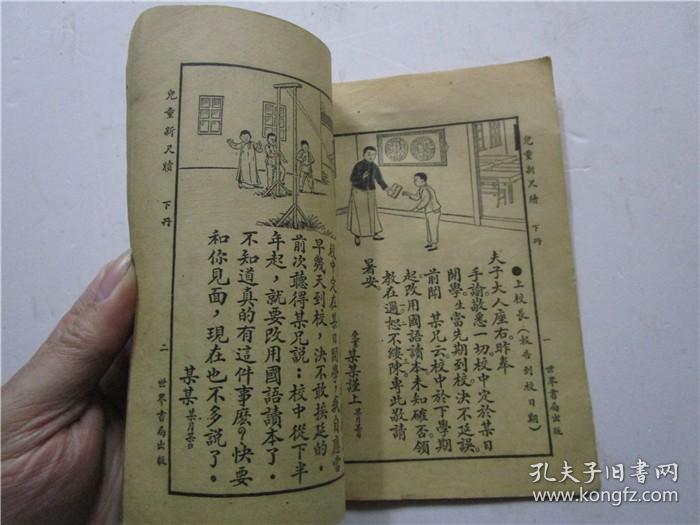 兒童新尺牘 下册
一 世界書局出版
●上校長（報告到校日期）
夫子大人座右。昨奉
手諭敬悉一切。校中定於某日
開學。生當先期到校。決不延誤。
前聞 某兄云。校中於下學期
起。改用國語讀本。未知確否。領
教在邇。恕不縷陳。專此敬請
暑安
某某謹上 某月某日
兒童新尺牘 下册
校中定在某日開學，我自應當
早幾天到校，決不敢挨延的．
前次聽得某兄說：校中從下半
年起，就要改用國語讀本了．
不知道真的有這件事麼？快要
和你見面，現在也不多說了．
某某 某月某日
二 世界書局出版
孔夫子旧书网
www.kongfz.com